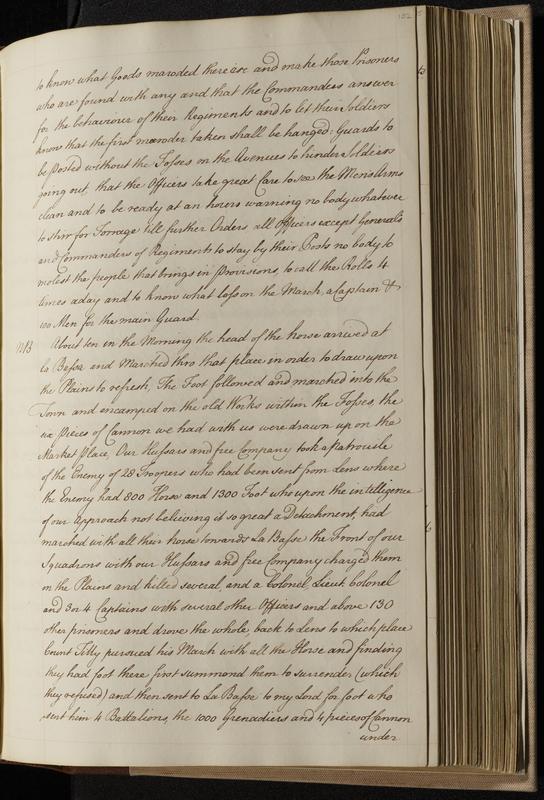 102
to know what Goods maroded there are and make those Prisoners
who are found with any and that the Commanders answer
for the behaviour of their Regiments and to let their Soldiers
know that the first maroder taken shall be hanged: Guards to
be posted without the Fosses on the Avenues to hinder Soldiers
going out, that the Officers take great Care to see the Mens Arms
clean and to be ready at an hours warning no body whatever
to stirr for Forrage till further Orders all Officers except Generals
and Commanders of Regiments to stay by their Posts no body to
molest the people that brings in Provisions, to call the Rolls 4
times a day and to know what loss on the March, a Captain &
100 Men for the main Guard.
About ten in the Morning the head of the horse arrived at
La Bassa and Marched thro that place in order to draw upon
the Plains to refresh, The Foot followed and marched into the
Town and encamped on the old Works within the Fosses, the
six pieces of Cannon we had with us were drawn up on the
Market Place, Our Hussars and free Company took a Patrouile
of the Enemy of 28 Troopers who had been sent from Lens where
the Enemy had 800 Horse and 1300 Foot who upon the intelligence
of our Approach not believing it so great a Detachment, had
marched with all their horse towards La Basse the Front of our
Squadrons with our Hussars and free Company charged them
on the Plains and killed several, and a Colonel Lieut Colonel
and 3 or 4 Captains with several other Officers and above 130
other prisoners and drove the whole, back to Lens to which place
Count Tilly pursued his March with all the Horse and finding
they had foot there first summond them to surrender (which
they refused) and then sent to La Basse to my Lord for foot who
sent him 4 Battalions, the 1000 Grenadiers and 4 pieces of Cannon
under